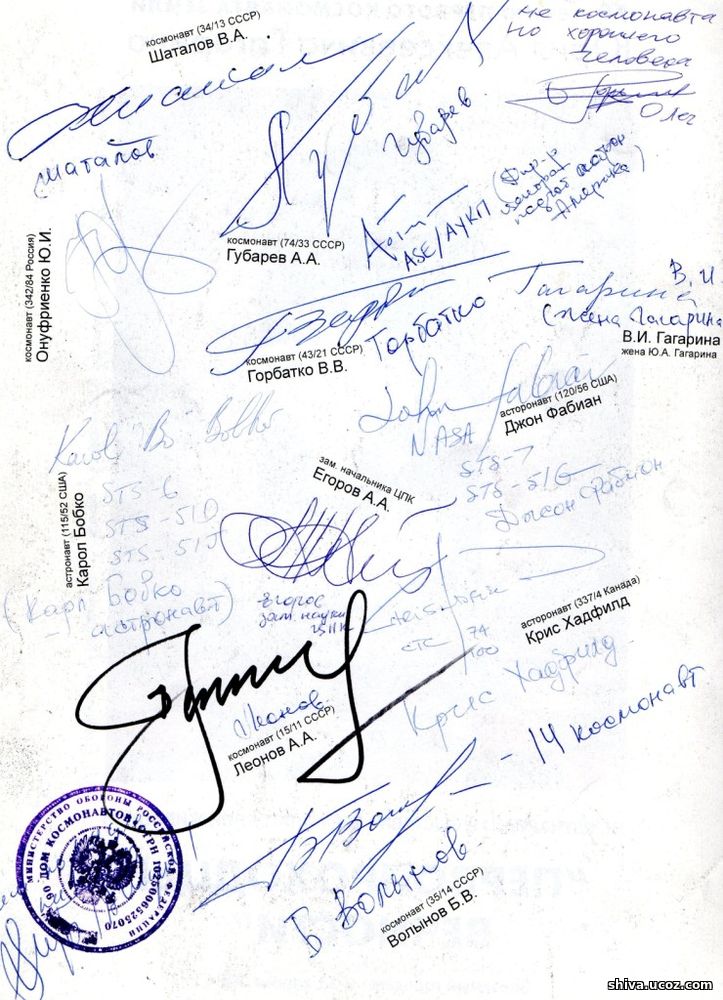 космонавт (34/13 СССР)
Шаталов В.А.
не космонавта
но хорошего
человека
Олег
Шаталов
Губарев
космонавт (74/33 СССР)
Губарев А.А.
ASE/АУКП
Америка)
космонавт (342/84 Россия)
Онуфриенко Ю.И.
космонавт (43/21 СССР)
Горбатко В.В.
Горбатко
Гагарина В.И
(жена Гагарина
В.И. Гагарина
жена Ю.А. Гагарина
John Fabian
NASA
асторонавт (120/56 США)
Джон Фабиан
STS-7
STS-51G
Джон Фабиан
Karol "Bo" Bobko
STS-6
STS-51D
STS-51J
астронавт (115/52 США)
Карол Бобко
(Карл Бобко
астронавт)
зам. начальника ЦПК
Егоров А.А.
Егоров
асторонавт (337/4 Канада)
Крис Хадфилд
СТС 74
100
Крис Хадфилд
Леонов
космонавт (15/11 СССР)
Леонов А.А.
- 14 космонавт
Б Волынов
космонавт (35/14 СССР)
Волынов Б.В.
МИНИСТЕРСТВО ОБОРОНЫ РОССИЙСКОЙ ФЕДЕРАЦИИ
ДОМ КОСМОНАВТОВ
ОГРН 1025006525070
shiva.ucoz.com